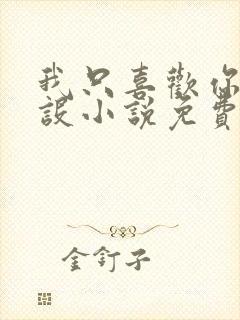 我只喜歡你
設小說免費
金釘子